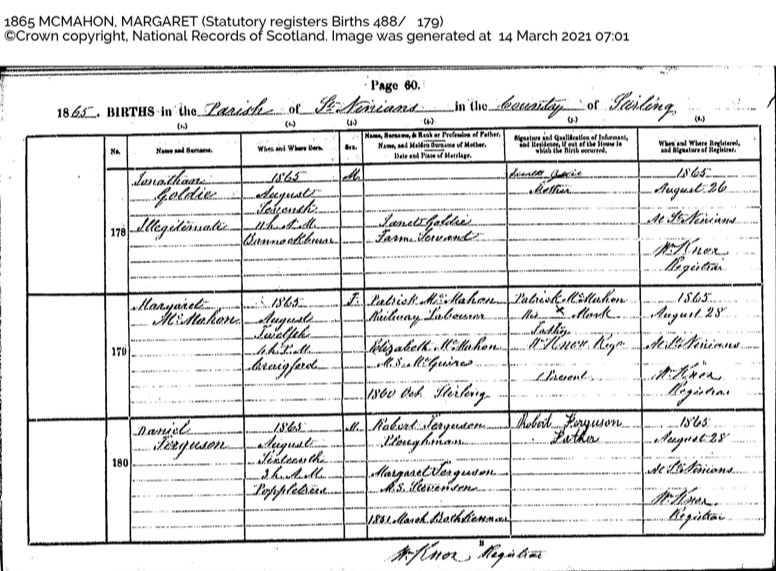 1865 MCMAHON, MARGARET (Statutory registers Births 488/ 179)
©Crown copyright, National Records of Scotland. Image was generated at 14 March 2021 07:01
Page 60.
1865. BIRTHS in the Parish of St. Ninians in the County of Stirling
(1.) (2.) (3.) (4.) (5.) (6.)
No.
Name and Surname.
When and Where Born.
Sex.
Name, Surname, & Rank or Profession of Father.
Name, and Maiden Surname of Mother.
Date and Place of Marriage.
Signature and Qualification of Informant,
and Residence, if out of the House in
which the Birth occurred.
When and Where Registered,
and Signature of Registrar.
178
Jonathan
Goldie
Illegitimate
1865
August
11 h. A.M.
Bannockburn
M.
Janet Goldie
Farm Servant
Mother
1865
August 26
At St. Ninians
Wm Knox
Registrar
179
Margaret
McMahon
1865
August
Twelfth
h. P.M.
Craigford
F.
Patrick McMahon
Railway Labourer
Elizabeth McMahon
M.S. McGuire
1860 Oct. Stirling
Patrick McMahon
His x Mark
Father
Wm Knox Regr
Present
1865
August 28
At St. Ninians
Wm Knox
Registrar
180
Daniel
Ferguson
1865
August
Sixteenth
3 h. A.M.
M.
Robert Ferguson
Ploughman
Margaret Ferguson
M.S. Stevenson
March Bothkennar
Robert Ferguson
Father
1865
August 28
At St. Ninians
Wm Knox
Registrar
Wm Knox Registrar